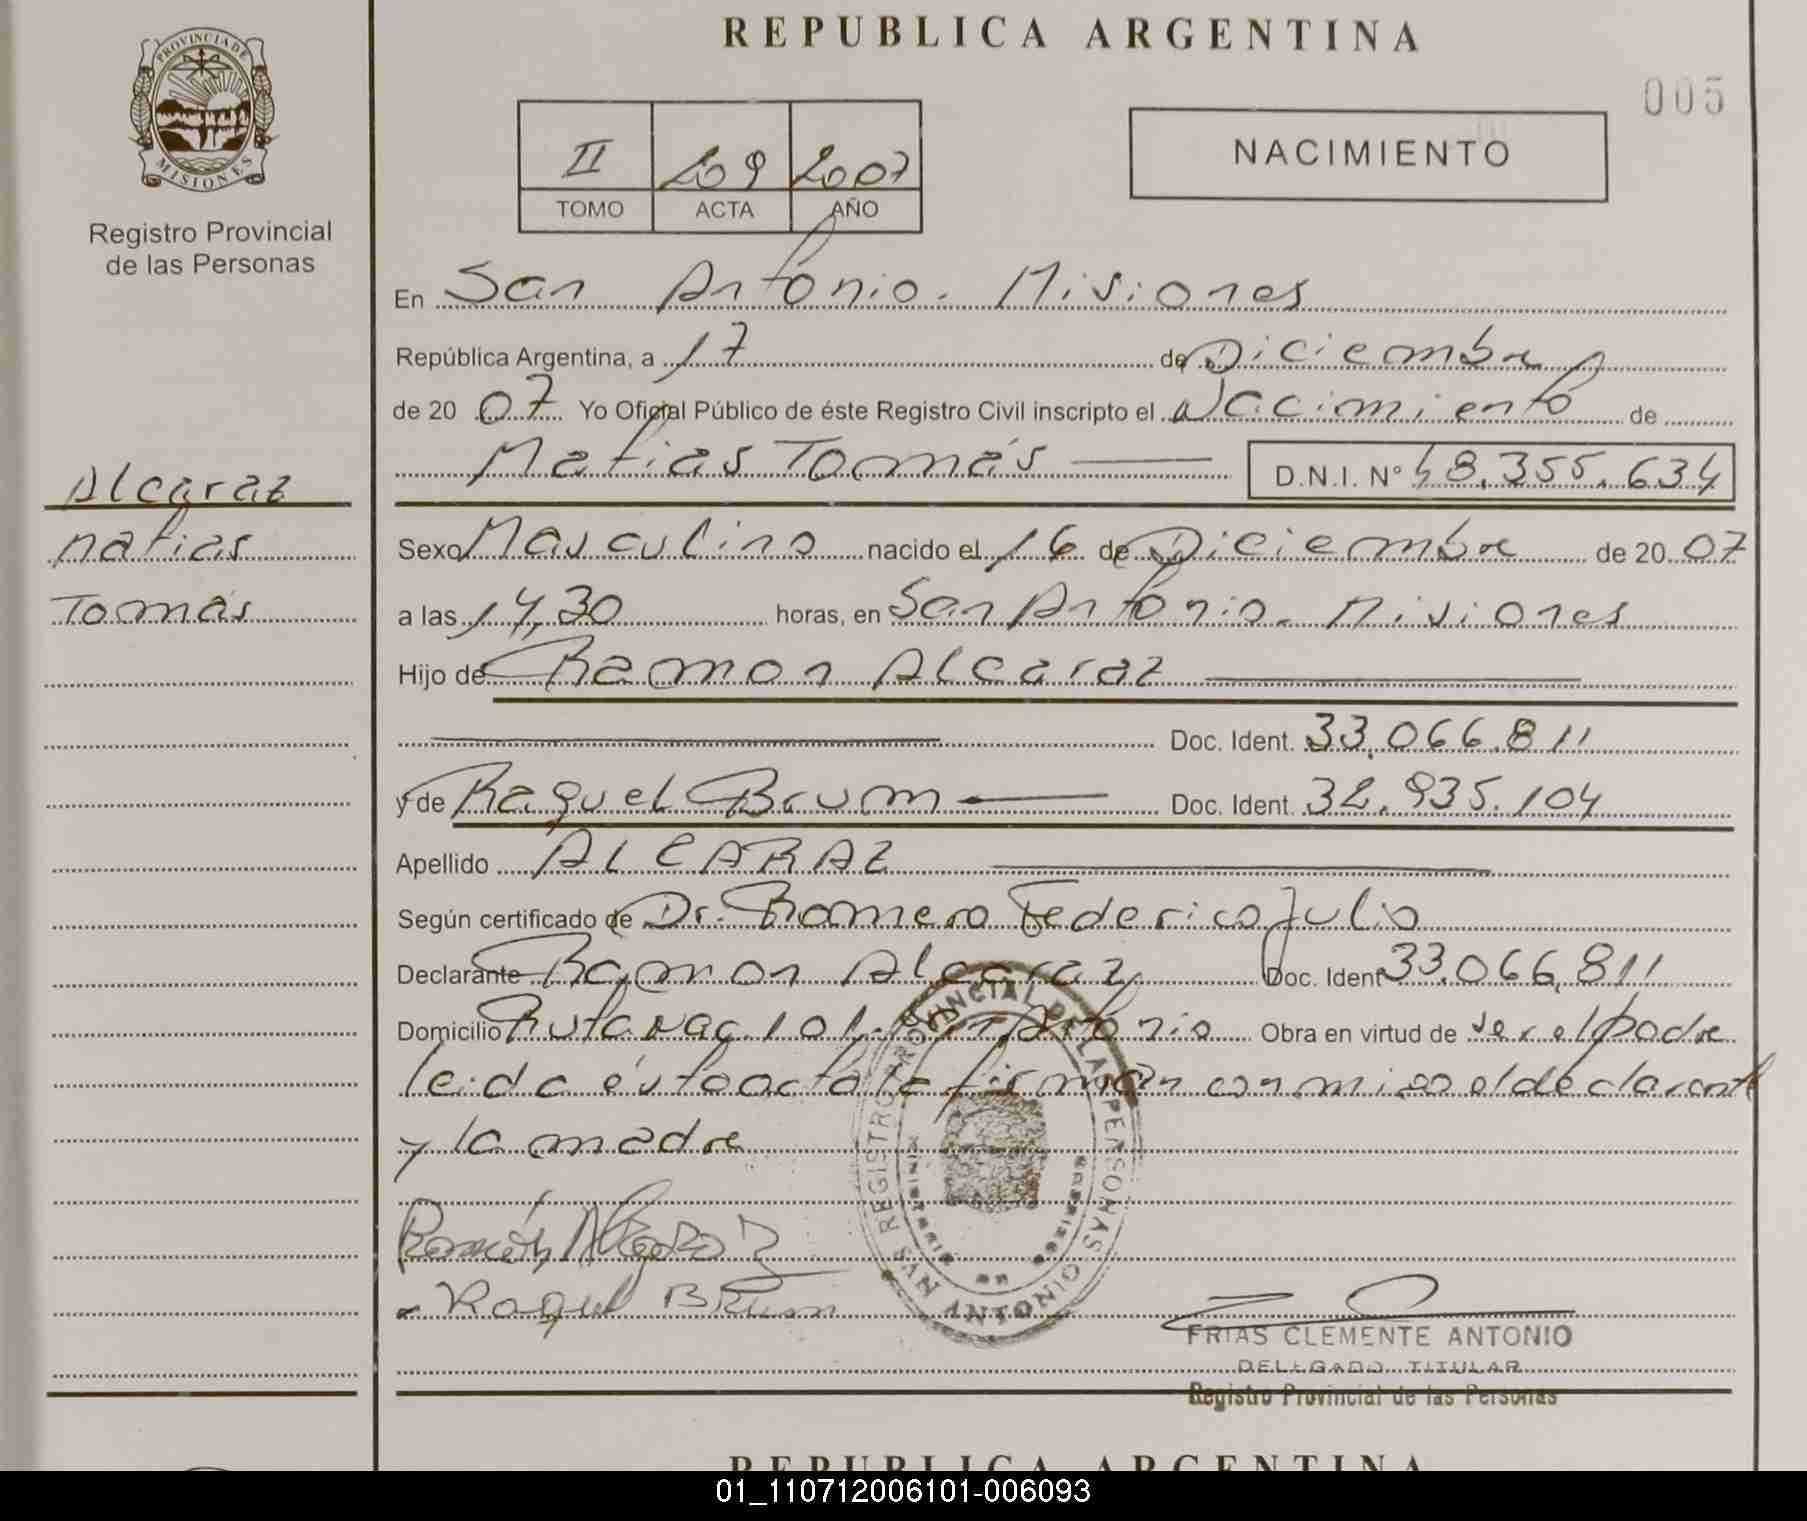 REPUBLICA ARGENTINA
005
PROVINCIA DE
MISIONES
Registro Provincial
de las Personas
II 209 2007
TOMO ACTA AÑO
NACIMIENTO
En San Antonio. Misiones
República Argentina, a 17 de Diciembre
de 20 07 Yo Oficial Público de éste Registro Civil inscripto el Nacimiento de
Matias Tomás D.N.I. N° 48.355.634
Alcaraz
Matias
Tomás
Sexo Masculino nacido el 16 de Diciembre de 20 07
a las 14,30 horas, en San Antonio. Misiones
Hijo de Ramon Alcaraz
Doc. Ident. 33.066.811
y de Raquel Brum Doc. Ident. 32.935.104
Apellido ALCARAZ
Según certificado de Dr. Romero Federico Julio
Declarante Ramon Alcaraz Doc. Ident 33.066.811
Domicilio Ruta Nac. 101. San Antonio Obra en virtud de ser el padre
leida ésta acta la firman conmigo el declarante
y la madre
Ramón Alcaraz
Raquel Brum
REGISTRO PROVINCIAL DE LAS PERSONAS
SAN ANTONIO
FRIAS CLEMENTE ANTONIO
DELEGADO TITULAR
Registro Provincial de las Personas
REPUBLICA ARGENTINA
01_110712006101-006093